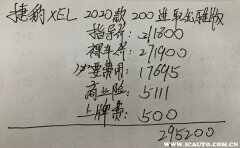 捷豹XEL 2020款 200进取优雅版
指导价:
裸车价: 271900
必要费用: 17645
商业险: 5111
上牌费: 500
295200
WWW.ICAUTO.COM.CN